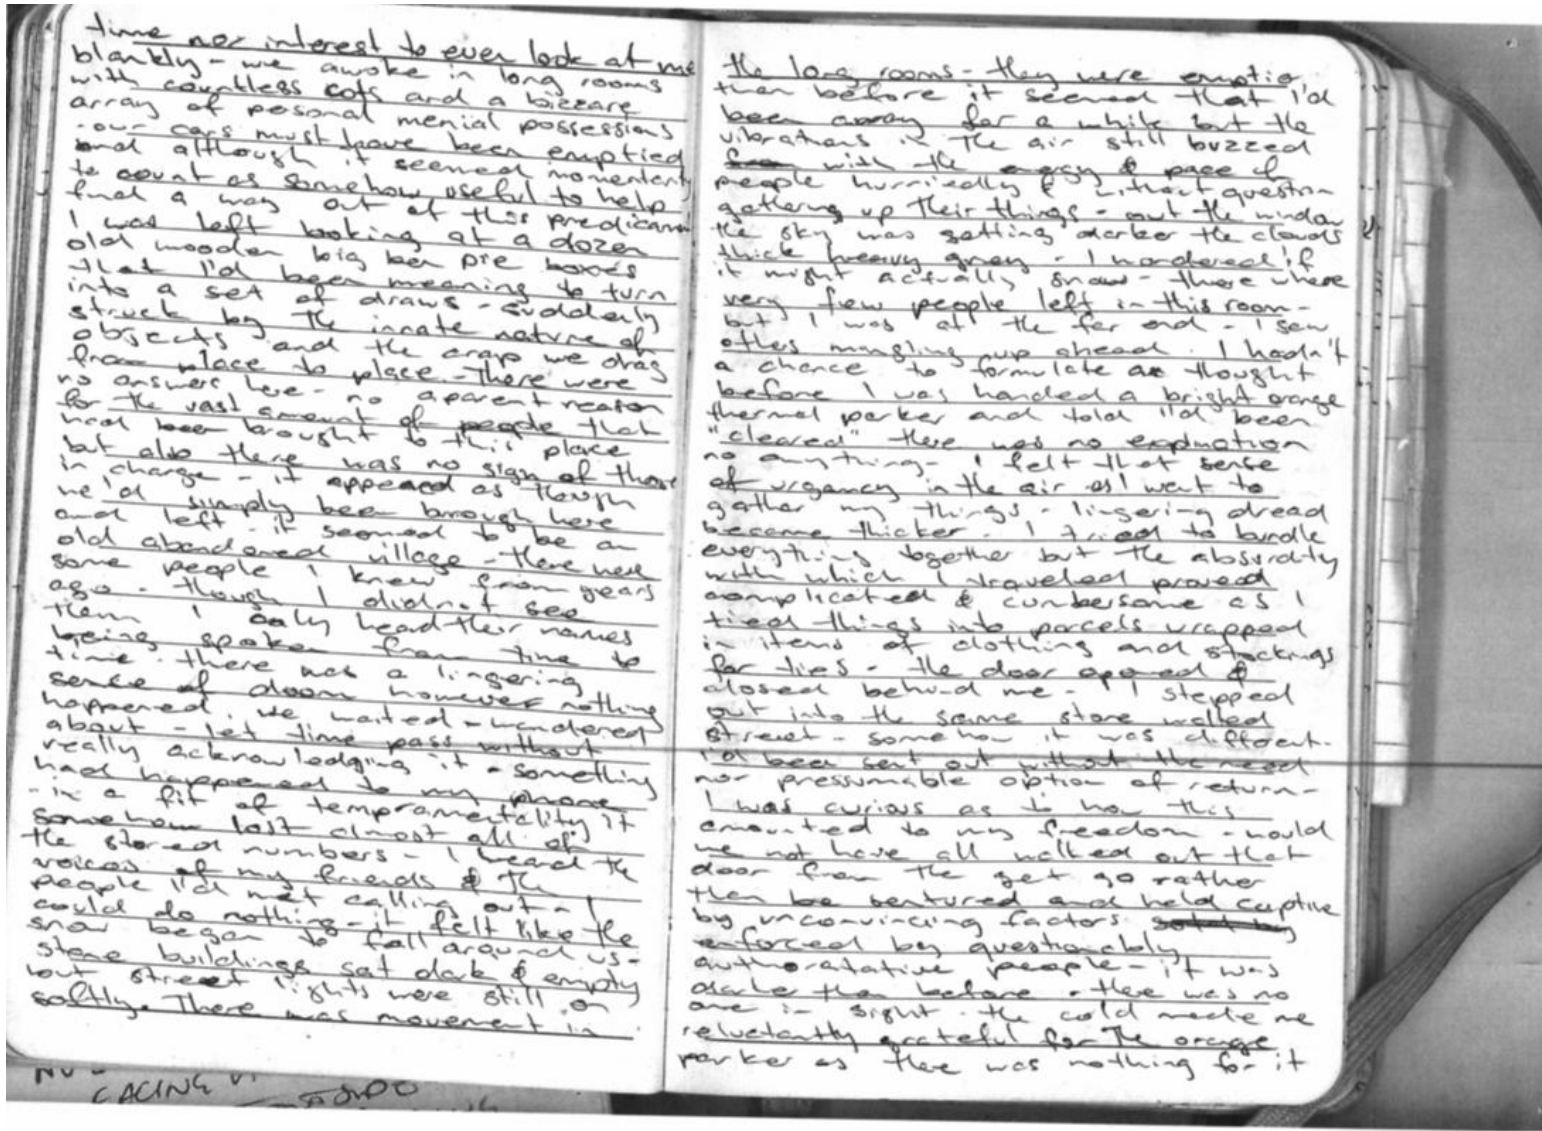 time nor interest to even look at me
blankly - we awoke in long rooms
with countless cots and a bizzare
array of personal menial possessions
- our cars must have been emptied
and although it seemed momentarily
to count as somehow useful to help
find a way out of this predicam
I was left looking at a dozen
old wooden big ben pie boxes
that I'd been meaning to turn
into a set of draws - suddenly
struck by the innate nature of
objects and the crap we drag
from place to place - There were
no answers here - no aparent reason
for the vast amount of people that
had been brought to this place
but also there was no sign of those
in charge - it appeared as though
we'd simply been brough here
and left - it seemed to be an
old abandoned village - there were
some people I knew from years
ago - though I did not see
them I only heard their names
being spoken from time to
time. there was a lingering
sense of doom however nothing
happened. we waited - wandered
about - let time pass without
really acknowledging it - something
had happened to my phone
- in a fit of tempramentality it
somehow lost almost all of
the stored numbers - I heard the
voices of my friends & the
people I'd met calling out - I
could do nothing - it felt like the
snow began to fall around us -
stone buildings sat dark & empty
but street lights were still on
softly. There was movement in
the long rooms - they were emptio
than before it seemed that I'd
been away for a while but the
vibrations in the air still buzzed
with the energy & pace of
people hurriedly & without question
gathering up their things - out the window
the sky was getting darker the clouds
thick heavy grey - I wondered if
it might actually snow - there where
very few people left in this room -
but I was at the far end - I saw
others mingling up ahead. I hadn't
a chance to formulate a thought
before I was handed a bright orange
thermal parker and told I'd been
"cleared" there was no explination
no anything - I felt that sense
of urgancy in the air as I went to
gather my things - lingering dread
became thicker - I tried to bundle
everything together but the absurdity
with which I traveled proved
complicated & cumbersome as I
tied things into parcels wrapped
in items of clothing and stockings
for ties - the door opened &
closed behind me - I stepped
out into the same stone walled
street - somehow it was different -
I'd been sent out without the need
nor pressumable option of return -
I was curious as to how this
amounted to my freedom - would
we not have all walked out that
door from the get go rather
than be and held captive
by unconvincing factors
enforced by questionably
authoratative people - it was
darker than before - there was no
one in sight - the cold made me
reluctantly grateful for the orange
parker as there was nothing for it